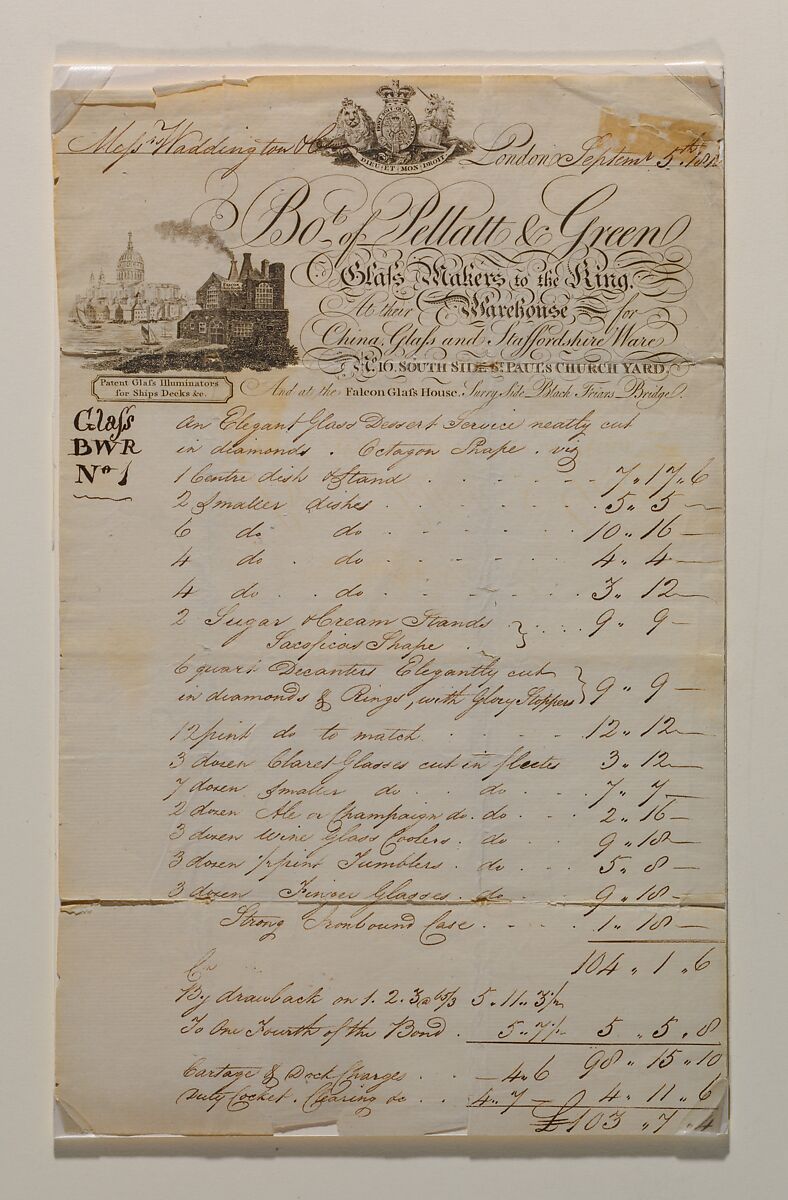 Messrs Waddington & Co London Septemr 5th
DIEU ET MON DROIT
Bot. of Pellatt & Green
Glass Makers to the King.
At their Warehouse for
China, Glass and Staffordshire Ware
No. 16, SOUTH SIDE St. PAUL'S CHURCH YARD,
And at the Falcon Glass House, Surry Side Black Friars Bridge.
FALCON
Patent Glass Illuminators
for Ships Decks &c.
Glass
BWR
No 1
An Elegant Glass Dessert Service neatly cut
in diamonds. Octagon Shape. viz
1 Centre dish & Stand 7 " 17 " 6
2 Smaller dishes 5 " 5 —
6 do do 10 " 16 —
4 do do 4 " 4 —
4 do do 3 " 12 —
2 Sugar & Cream Stands } 9 " 9 —
Shape
6 quart Decanters Elegantly cut
in diamonds & Rings, with Glory Stoppers } 9 " 9 —
12 pint do to match 12 " 12 —
3 dozen Claret Glasses cut in flutes 3 " 12 —
7 dozen Smaller do do 7 " 7 —
2 dozen Ale or Champaign do. do 2 " 16 —
3 dozen Wine Glass Coolers. do 9 " 18 —
3 dozen 1/2 pint Tumblers. do 5 " 8 —
3 dozen Finger Glasses. do 9 " 18 —
Strong Ironbound Case 1 " 18 —
104 " 1 " 6
Cr
By drawback on 1. 2. 3 5 " 11 " 3 1/2
To One Fourth of the Bond 5 " 7 1/2 5 " 5 " 8
98 " 15 " 10
Cartage & Dock Charges — 4 " 6
Duty Cocket. Clearing &c 4 " 7 — 4 " 11 " 6
£103 " 7 " 4